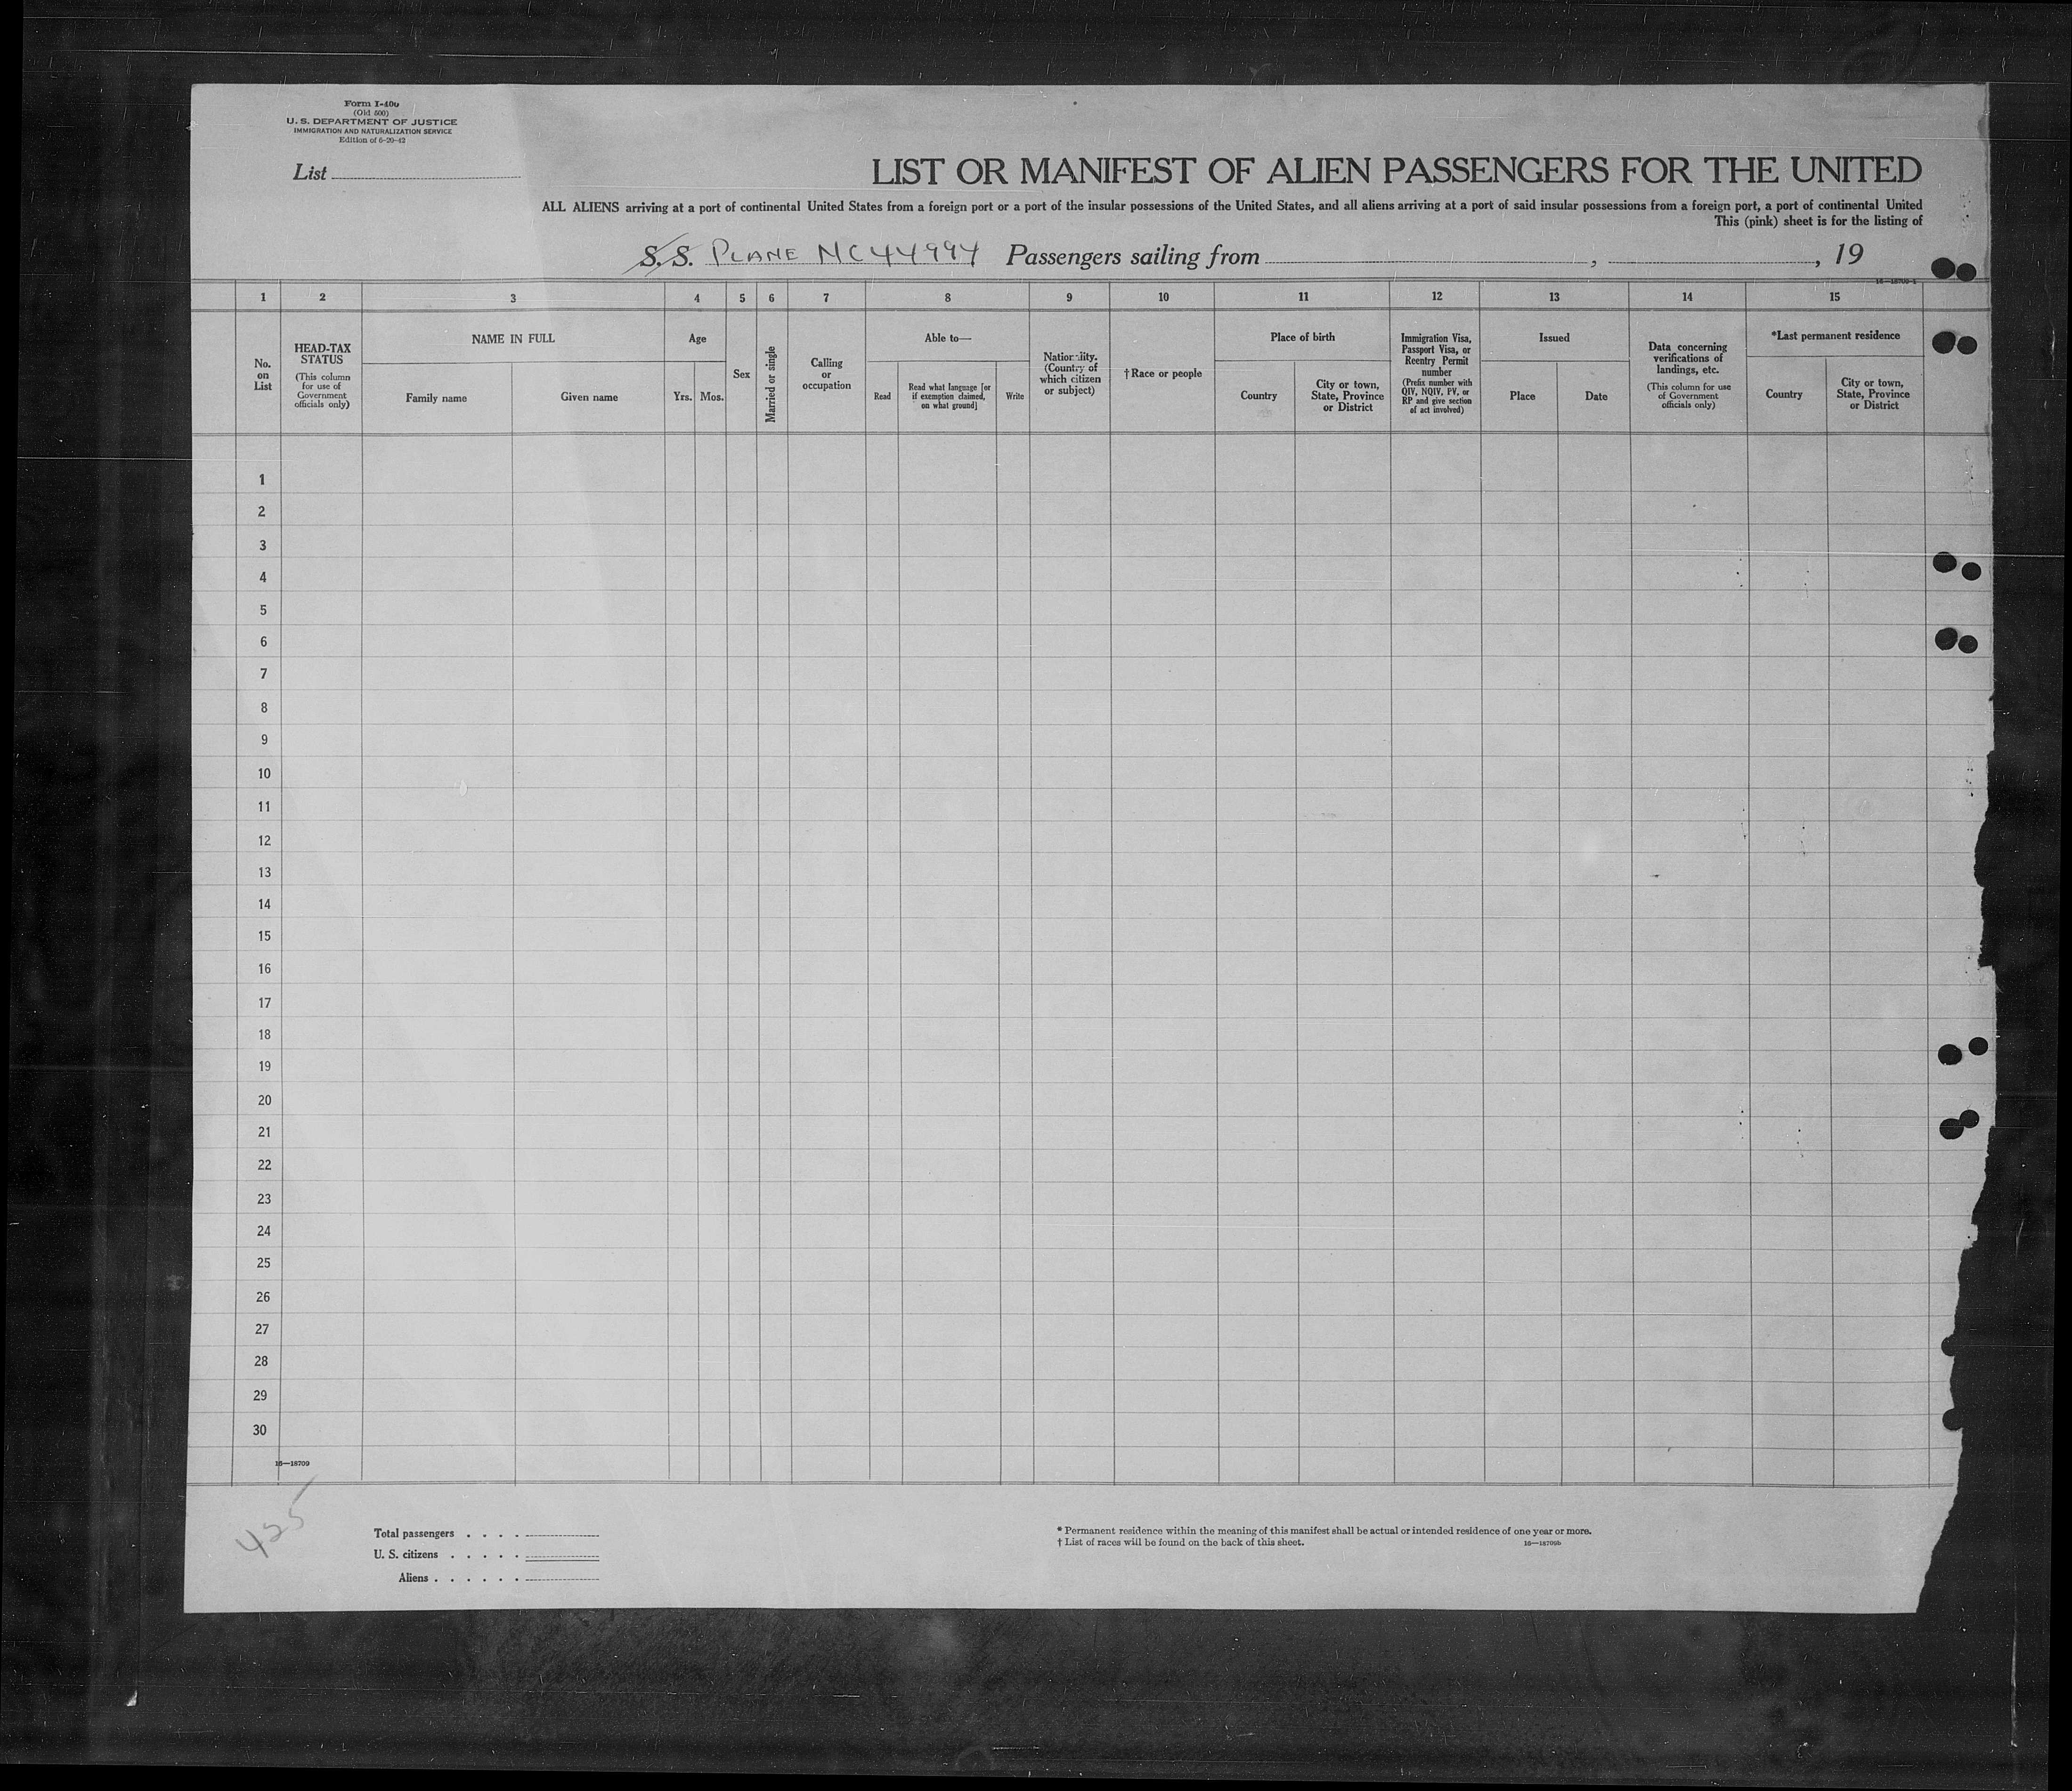 Form I-400
(Old 500)
U. S. DEPARTMENT OF JUSTICE
IMMIGRATION AND NATURALIZATION SERVICE
Edition of 6-20-42
List
LIST OR MANIFEST OF ALIEN PASSENGERS FOR THE UNITED
ALL ALIENS arriving at a port of continental United States from a foreign port or a port of the insular possessions of the United States, and all aliens arriving at a port of said insular possessions from a foreign port, a port of continental United
This (pink) sheet is for the listing of
S. S. PLANE NC44994 Passengers sailing from , , 19
1 2 3 4 5 6 7 8 9 10 11 12 13 14 15
No. on List
HEAD-TAX STATUS
(This column for use of Government officials only)
NAME IN FULL
Family name
Given name
Age
Yrs. Mos.
Sex
Married or single
Calling or occupation
Able to—
Read
Read what language [or if exemption claimed, on what ground]
Write
Nationality. (Country of which citizen or subject)
†Race or people
Place of birth
Country
City or town, State, Province or District
Immigration Visa, Passport Visa, or Reentry Permit number
(Prefix number with QIV, NQIV, PV, or RP and give section of act involved)
Issued
Place
Date
Data concerning verifications of landings, etc.
(This column for use of Government officials only)
*Last permanent residence
Country
City or town, State, Province or District
1
2
3
4
5
6
7
8
9
10
11
12
13
14
15
16
17
18
19
20
21
22
23
24
25
26
27
28
29
30
16—18709
425
Total passengers . . . .
U. S. citizens . . . . .
Aliens . . . . . .
* Permanent residence within the meaning of this manifest shall be actual or intended residence of one year or more.
† List of races will be found on the back of this sheet.
16—18709b